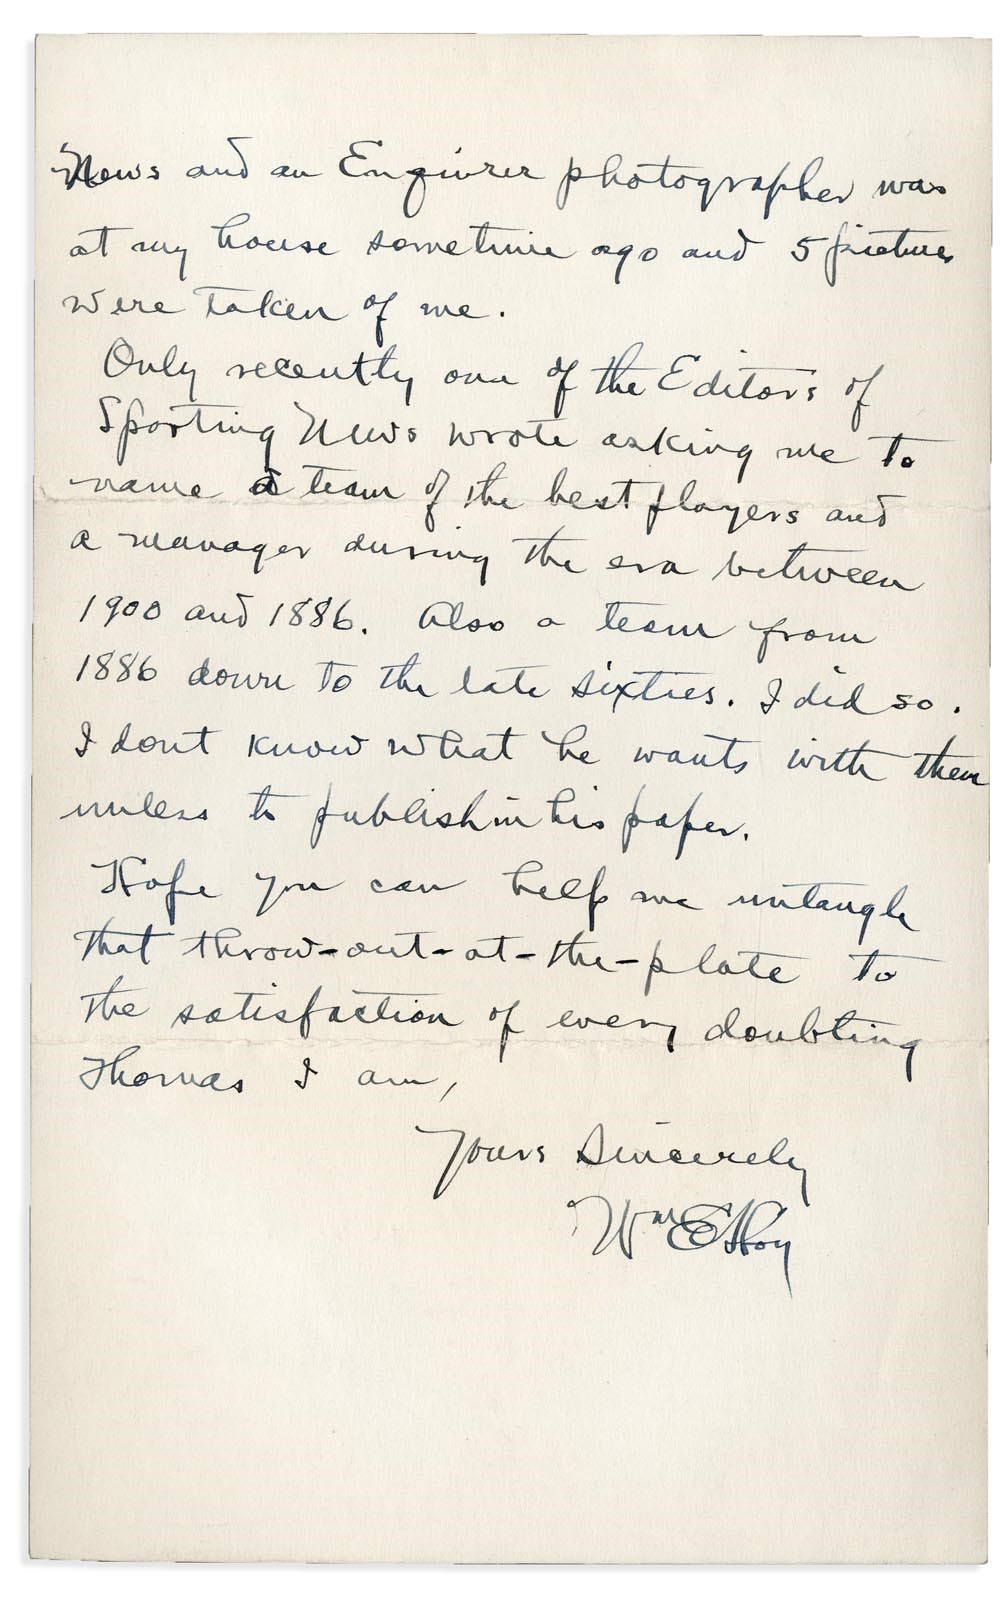 News and an Enquirer photographer was
at my house sometime ago and 5 pictures
were taken of me.
Only recently one of the Editors of
Sporting News wrote asking me to
name a team of the best players and
a manager during the era between
1900 and 1886. Also a team from
1886 down to the late sixties. I did so.
I dont know what he wants with them
unless to publish in his paper.
Hope you can help me untangle
that throw-out-at-the-plate to
the satisfaction of every doubting
Thomas I am,
Yours Sincerely
Wm E Hoy